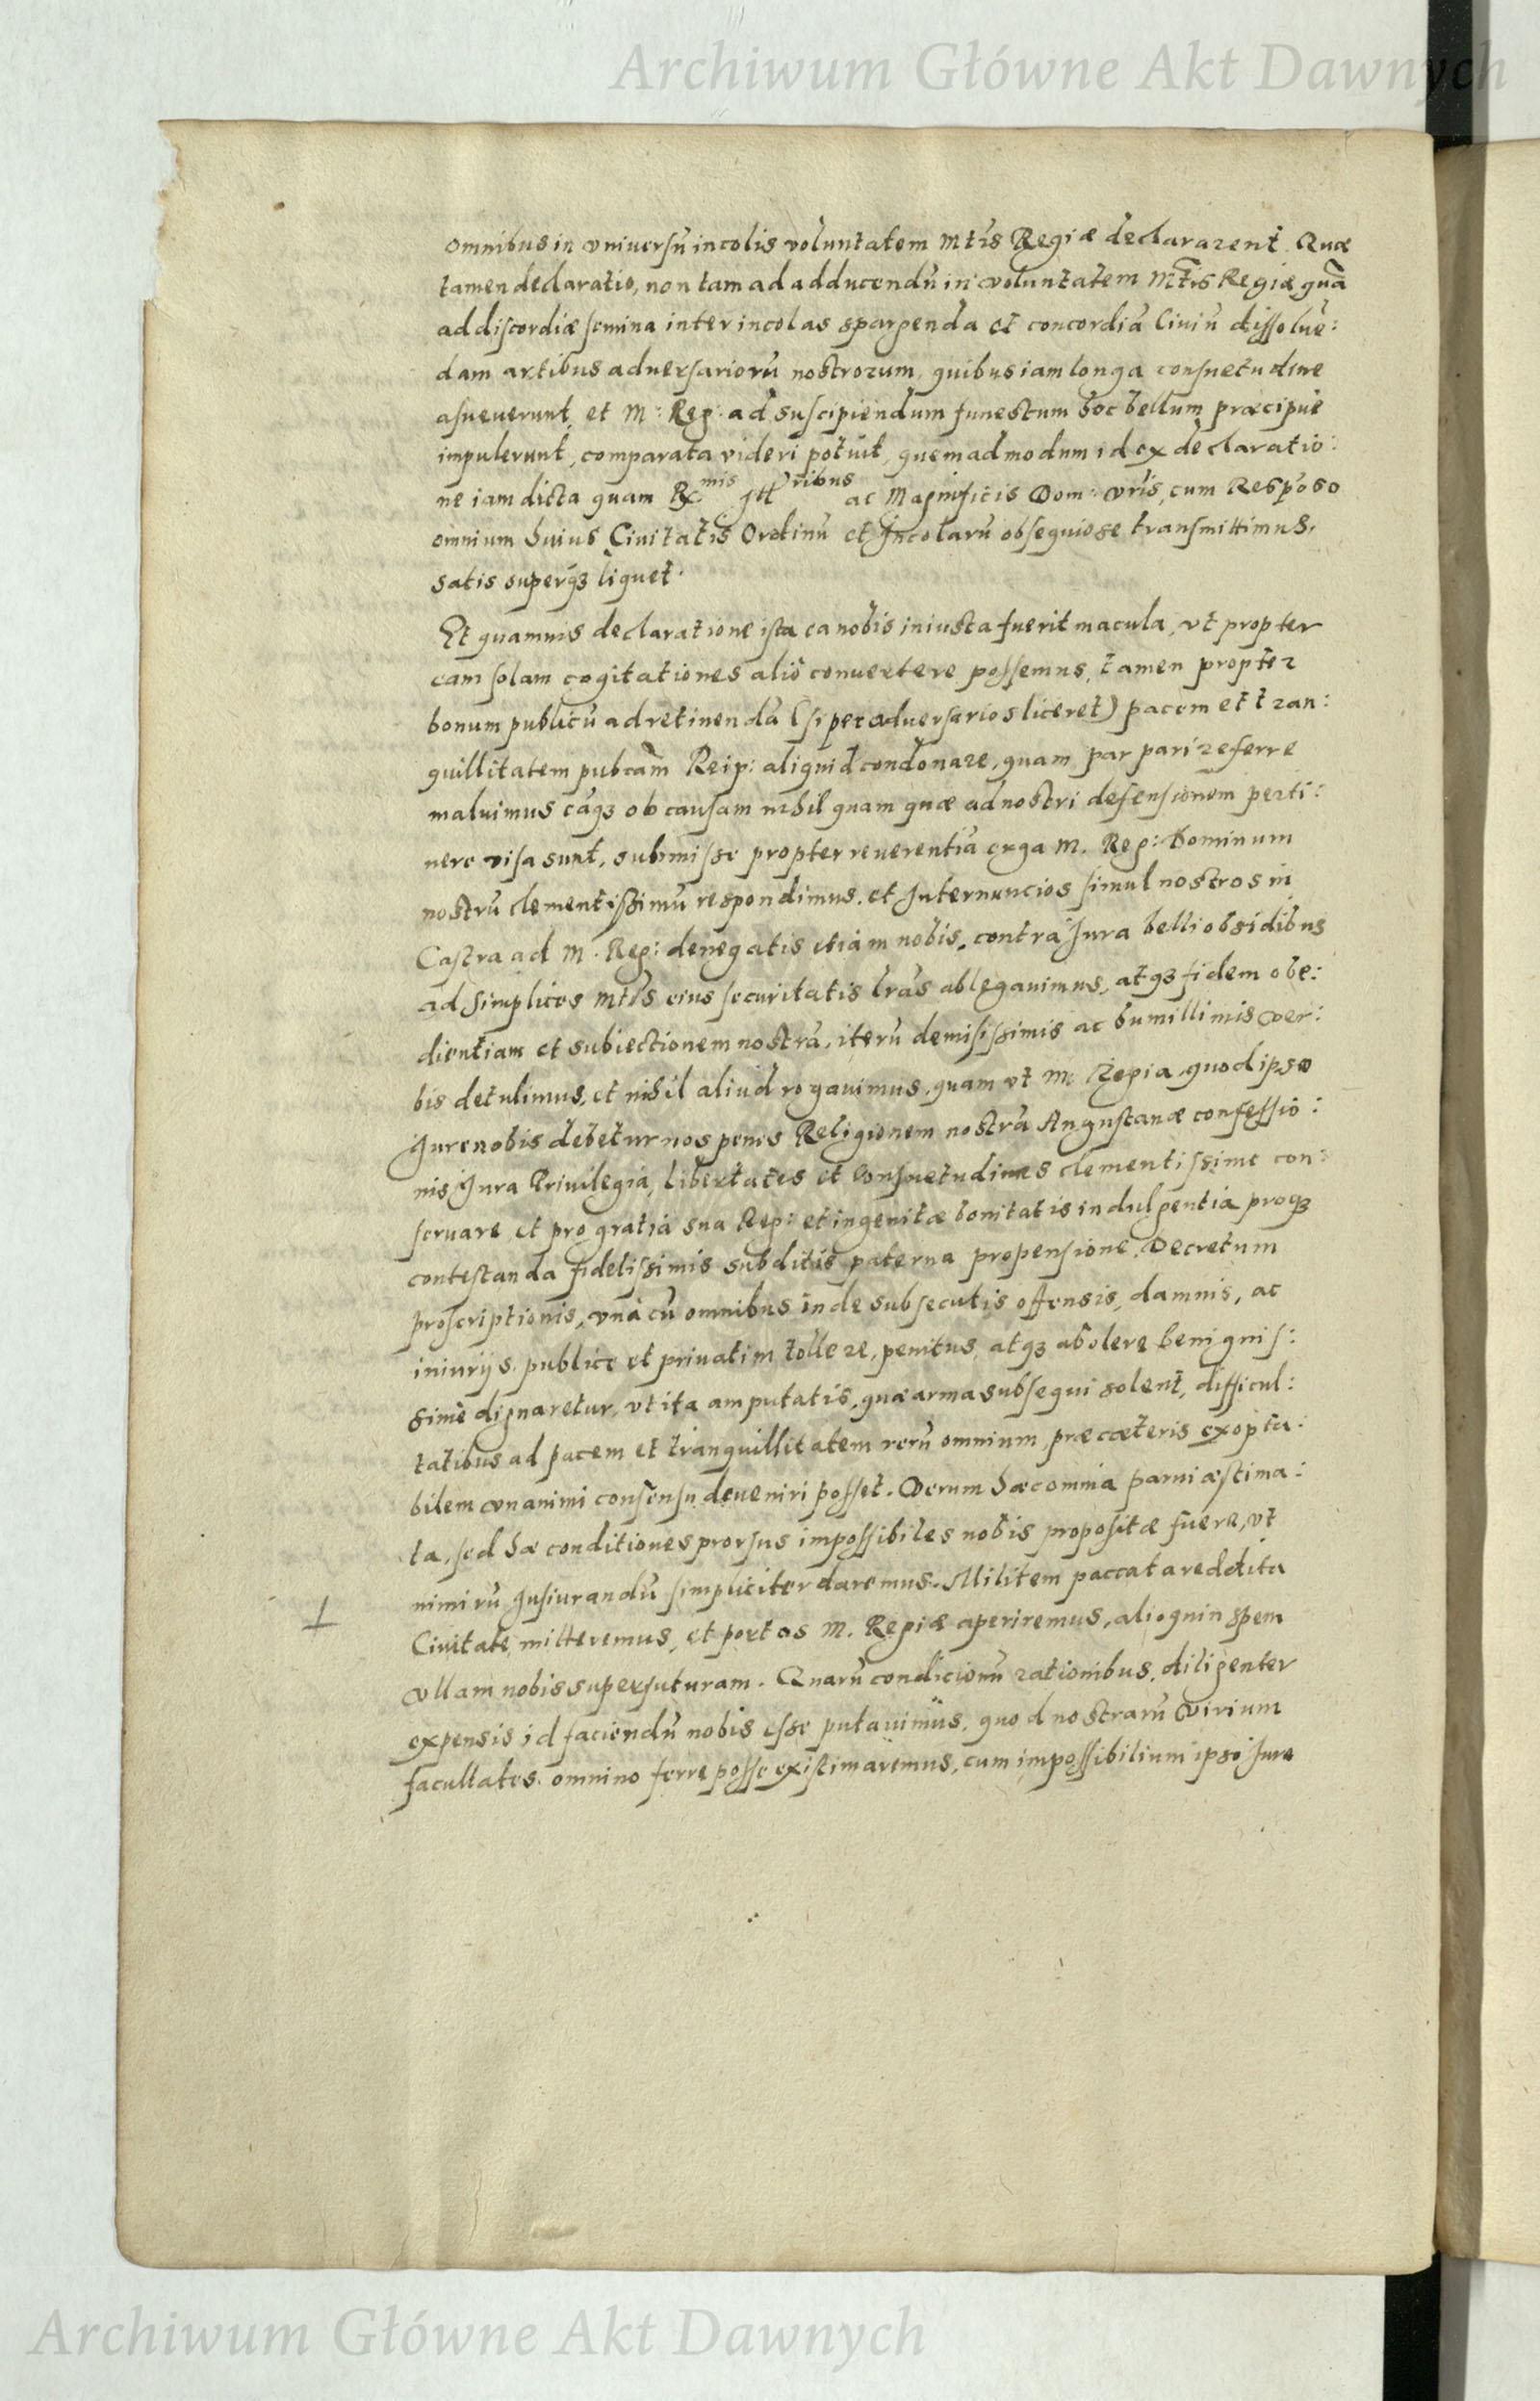 Archiwum Główne Akt Dawnych
omnibus in vniversũ incolis voluntatem Mtis Regiæ declararent. Quæ
tamen declaratio, non tam ad adducendũ in voluntatem Mtis Regiæ quã
ad discordiæ semina inter incolas spargenda et concordiã Civiũ dissolue:
dam artibus adversariorũ nostrorum, quibus iam longa consuetudine
asueverunt, et M: Reg: ad suscipiendum funestum hoc bellum præcipuè
impulerunt, comparata videri potuit, quemadmodum id ex declaratio:
ne iam dicta quam Rmis Illribus ac Magnificis Dom: vris, cum Respõso
omnium huius Civitatis Ordinũ et Incolarũ obsequiose transmittimus,
satis superq3 liquet.
Et quamuis declaratione ista ea nobis iniusta fuerit macula, vt propter
eam solam cogitationes aliò convertere possemus, tamen propter
bonum publicũ ad retinendã (si per adversarios liceret) pacem et tran:
quillitatem pubcam Reip: aliquid condonare, quam par pari referre
maluimus eãq3 ob causam nihil quam quæ ad nostri defensionem perti:
nere visa sunt, submisse propter reuerentiã erga M. Reg: Dominum
nostrũ clementissimũ respondimus. et Internuncios simul nostros in
Castra ad M. Reg: denegatis etiam nobis, contra Jura belli obsidibus
ad simplices Mtis eius securitatis lras ablegauimus, atq3 fidem obe:
dientiam et subiectionem nostrã, iterũ demisissimis ac humillimis ver:
bis detulimus, et nihil aliud rogauimus, quam vt M. Regia, quod ipso
Jure nobis debetur nos penes Religionem nostrã Augustanæ confessio:
nis Jura Privilegia, libertates et Consuetudines clementissime con:
servare et pro gratia sua Reg: et ingenitæ bonitatis indulgentia proq3
contestanda fidelissimis subditis paterna propensione, Decretum
proscriptionis, vnà cũ omnibus inde subsecutis offensis, damnis, ac
iniurijs publice et privatim tollere, penitus, atq3 abolere benignis:
simè dignaretur, vt ita amputatis, quæ arma subsequi solent, difficul:
tatibus ad pacem et tranquillitatem rerũ omnium, præ cæteris exopta:
bilem vnanimi consensu deveniri posset. Verum hæc omnia parui æstima:
ta, sed hæ conditiones prorsus impossibiles nobis propositæ fuere, vt
nimirũ Jusiurandũ simpliciter daremus. Militem paccata reddita
Civitate, mitteremus, et portas M. Regiæ aperiremus, alioquin spem
vllam nobis superfuturam. Quarũ condicionũ rationibus, diligenter
expensis id faciendũ nobis esse putauimus, quod nostrarũ virium
facultates omnino ferre posse existimaremus, cum impossibilium ipso Jure
Archiwum Główne Akt Dawnych